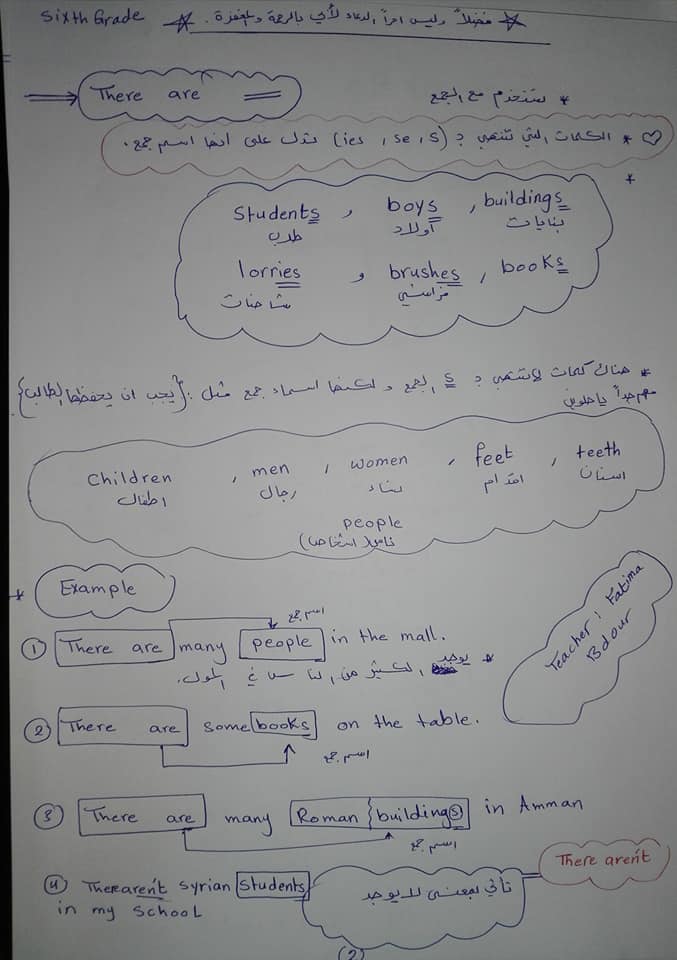 Sixth Grade
* فضلاً وليس امراً الدعاء لأبي بالرحمة والمغفرة. *
There are
* تستخدم مع الجمع
* الكلمات التي تنتهي بـ (s , se , ies) تدل على انها اسم جمع.
*
Students , boys , buildings
طلاب أولاد بنايات
lorries , brushes , books
شاحنات فراشي
* هناك كلمات لا تنتهي بـ s الجمع ولكنها اسماء جمع مثل : {يجب ان يحفظها الطالب}.
مهم جداً يا حلوين
Children , men , women , feet , teeth
اطفال رجال نساء اقدام اسنان
people
(ناس / اشخاص)
* Example
اسم جمع
① There are many people in the mall.
* يوجد الكثير من الناس في المول.
Teacher : Fatima
Bdour
② There are some books on the table.
اسم جمع
③ There are many Roman buildings in Amman
اسم جمع
There aren't
④ There aren't Syrian students
in my school
تأتي بمعنى لا يوجد
(2)